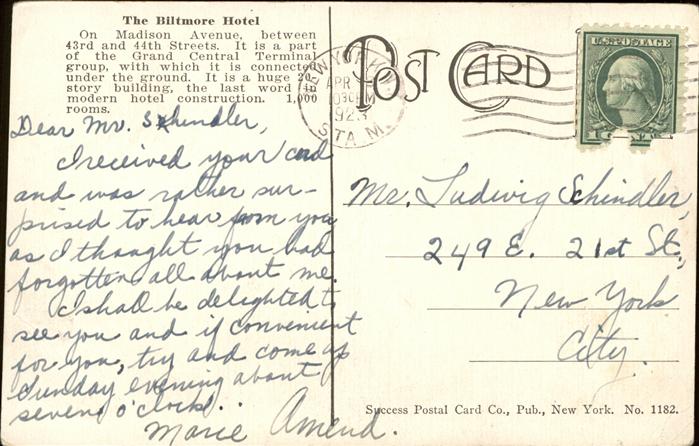 The Biltmore Hotel
On Madison Avenue, between
43rd and 44th Streets. It is a part
of the Grand Central Terminal
group, with which it is connected
under the ground. It is a huge
story building, the last word in
modern hotel construction. 1,000
rooms.
POST CARD
NEW YORK
APR
1030PM
1923
STA M.
U.S. POSTAGE
Dear Mr. Schindler,
I received your card
and was rather sur-
prised to hear from you
as I thought you had
forgotten all about me.
I shall be delighted to
see you and if convenient
for you, try and come up
Sunday evening about
seven o'clock...
Marie Amend.
Mr. Ludwig Schindler,
249 E. 21st St.,
New York
City.
Success Postal Card Co., Pub., New York. No. 1182.